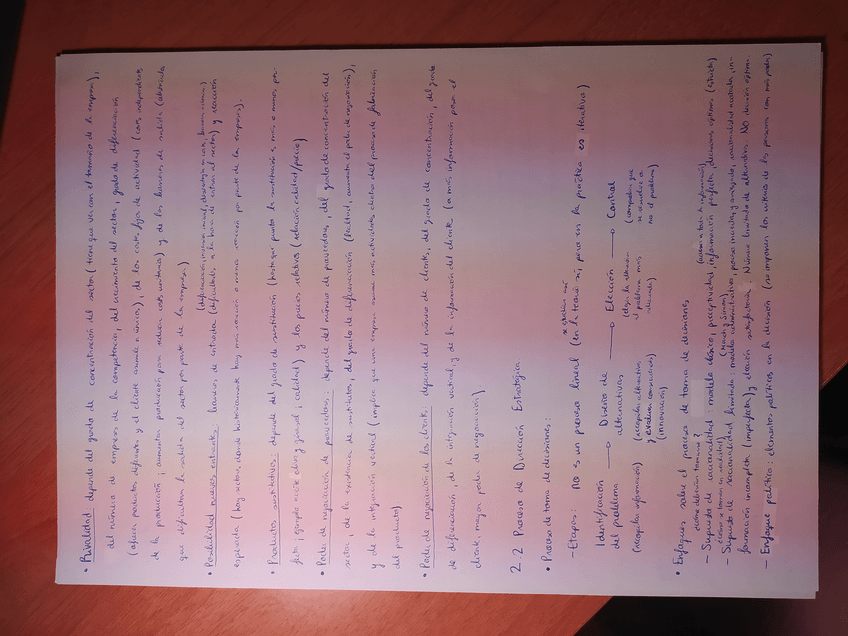 • Rivalidad: depende del grado de concentración del sector (tiene que ver con el tamaño de la empresa),
del número de empresas de la competencia, del crecimiento del sector, grado de diferenciación
(ofrecer productos diferentes y el cliente asume), de los costes fijos de actividad (con independencia
de la producción; aumentar producción para reducir coste unitario) y de las barreras de salida (obstáculos
que dificultan la salida del sector por parte de la empresa)
• Posibilidad nuevos entrantes: barreras de entrada (dificultades a la hora de entrar al sector) y reacción
esperada (hay sectores donde históricamente hay más reacción o menos reacción por parte de las empresas).
• Productos sustitutivos: depende del grado de sustitución (hasta qué punto lo sustituirá más o menos
ejemplo aceite oliva y girasol; calidad) y los precios relativos (relación calidad/precio)
• Poder de negociación de proveedores: depende del número de proveedores, del grado de concentración del
sector, de la existencia de sustitutos, del grado de diferenciación (lealtad, aumenta el poder de negociación),
y de la integración vertical (implica que una empresa asume más actividades dentro del proceso de fabricación
del producto)
• Poder de negociación de los clientes: depende del número de clientes, del grado de concentración, del grado
de diferenciación, de la integración vertical, y de la información del cliente (a más información para el
cliente, mayor poder de negociación)
2.2 Proceso de Dirección Estratégica
• Proceso de toma de decisiones:
- Etapas: no es un proceso lineal (en la teoría sí, pero en la práctica es iterativa)
se estudia así
Identificación → Diseño de → Elección → Control
del problema alternativas
(recopilar información) (recopilar alternativas
y evaluar consecuencias)
(innovación)
(elegir la alternativa
al problema más
adecuada)
(comprobar que
se resuelve o
no el problema)
• Enfoques sobre el proceso de toma de decisiones
¿cómo deberían tomarse? (acceso a toda la información)
- Supuesto de racionalidad: modelo clásico, información perfecta, decisiones óptimas
¿cómo se toman en realidad? (March y Simon)
- Supuesto de racionalidad limitada: modelo administrativo, racionalidad acotada, in-
formación incompleta (imperfecta) y elección satisfactoria. Número limitado de alternativas. NO decisión óptima
- Enfoque político: elementos políticos en la decisión (se imponen los criterios de las personas con más poder)